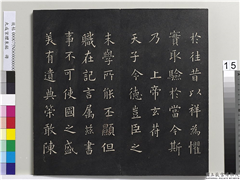 於往昔以祥為懼
實取驗於當今斯
乃上帝玄符
天子令德豈臣之
末學所能丕顯但
職在記言属茲書
事不可使國之盛
美有遺典策敢陳
15